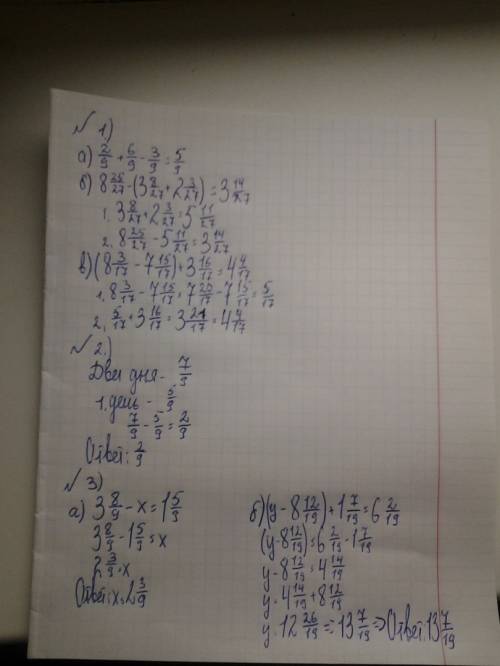 № 1)
а) 2/9 + 6/9 - 3/9 = 5/9
б) 8 25/27 - (3 8/27 + 2 3/27) = 3 14/27
1. 3 8/27 + 2 3/27 = 5 11/27
2. 8 25/27 - 5 11/27 = 3 14/27
в) (8 3/17 - 7 15/17) + 3 16/17 = 4 4/17
1. 8 3/17 - 7 15/17 = 7 20/17 - 7 15/17 = 5/17
2. 5/17 + 3 16/17 = 3 21/17 = 4 4/17
№ 2.)
Два дня - 7/9
1. день - 5/9
7/9 - 5/9 = 2/9
Ответ: 2/9
№ 3)
а) 3 8/9 - x = 1 5/9
3 8/9 - 1 5/9 = x
2 3/9 = x
Ответ: x = 2 3/9
б) (y - 8 12/19) + 1 7/19 = 6 2/19
(y - 8 12/19) = 6 2/19 - 1 7/19
y - 8 12/19 = 4 14/19
y = 4 14/19 + 8 12/19
y = 12 26/19 = 13 7/19 => Ответ: 13 7/19